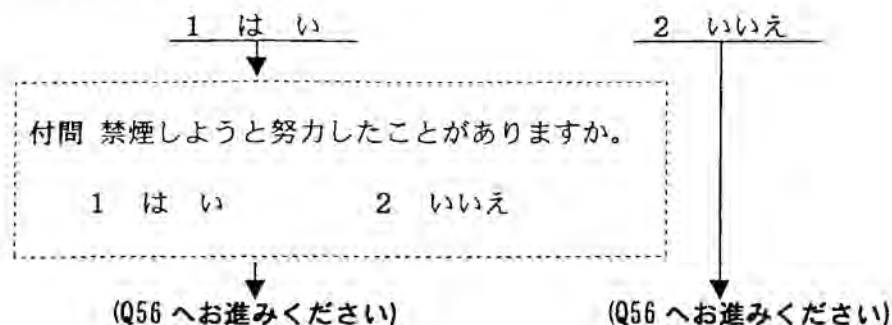 1 は い 2 いいえ
付問 禁煙しようと努力したことがありますか。
1 は い 2 いいえ
(Q56 へお進みください) (Q56 へお進みください)